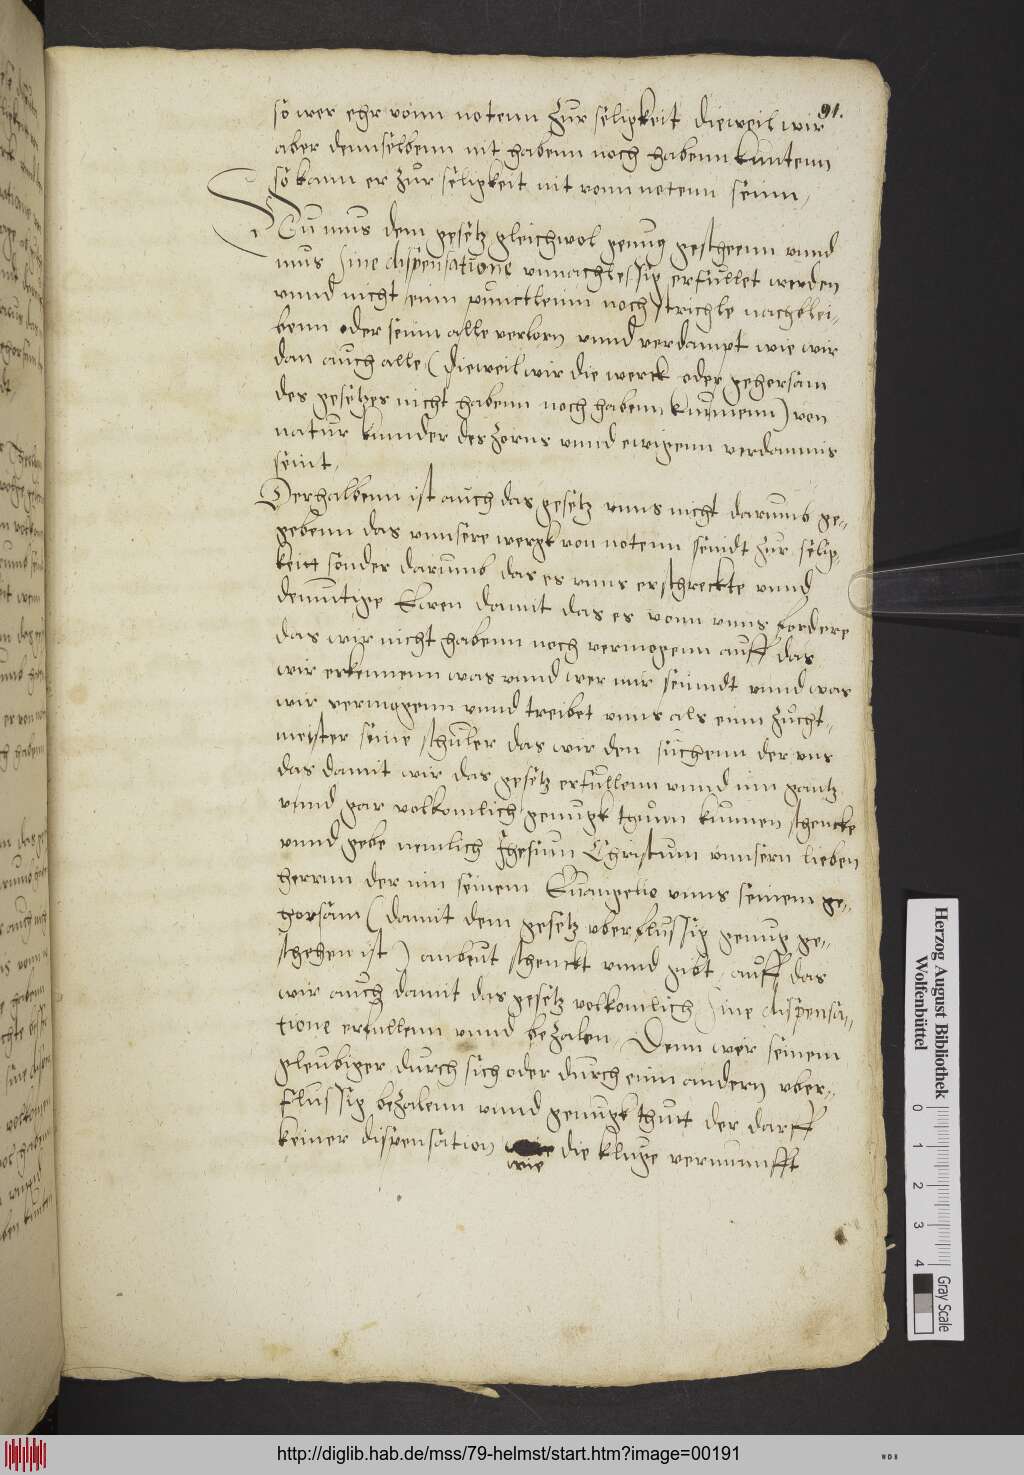 91.
so wer ehr vonn notenn zur seligkeit dieweil wir
aber dennselbenn nit habenn noch habenn kuntenn
so kann er zur seligkeit nit vonn notenn seinn,
Nu mus dem gesetz gleichwol genug gescheenn vnnd
mus sine dispensatione vnnachlessig erfullet werden
vnnd nicht einn punctleinn noch strichle nachblei-
benn oder seinn alle verlorn vnnd verdampt wie wir
dan auch alle (dieweil wir die werck oder gehorsam
des gesetzes nicht habenn noch habenn kunnenn) von
natur kinnder des zorns vnnd ewigenn verdamnis
seint,
Derhalbenn ist auch das gesetz vnns nicht darumb ge-
gebenn das vnnsere wergk von notenn seindt zur selig-
keitt sonder darumb das es vnns erschreckte vnnd
demutige damit das es vonn vnns fordere
das wir nicht habenn noch vermogenn auff das
wir erkennenn was vnnd wer wir seinndt vnnd was
wir vermogenn vnnd treibet vnns als einn zucht-
meister seine schuler das wir den suchenn der vns
das damit wir das gesetz erfullenn vnnd im gantz
vnnd gar volkomlich genugk thuen kunnen schencke
vnnd gebe nemlich Jhesum Christum vnnsern lieben
herrnn der inn seinem Euangelio vnns seinem ge-
horsam (damit dem gesetz vberflussig genug ge-
schehen ist) anbeut schenckt vnnd gibt, auff das
wir auch damit das gesetz volkomlich sine dispensa-
tione erfullenn vnnd bezalen, Denn wer seinem
gleubiger durch sich oder durch einn andern vber-
flussig bezalenn vnnd genugk thutt der darff
keiner dispensation wie die kluge vernunfft
Herzog August Bibliothek
Wolfenbüttel
0 1 2 3 4
Gray Scale
http://diglib.hab.de/mss/79-helmst/start.htm?image=00191